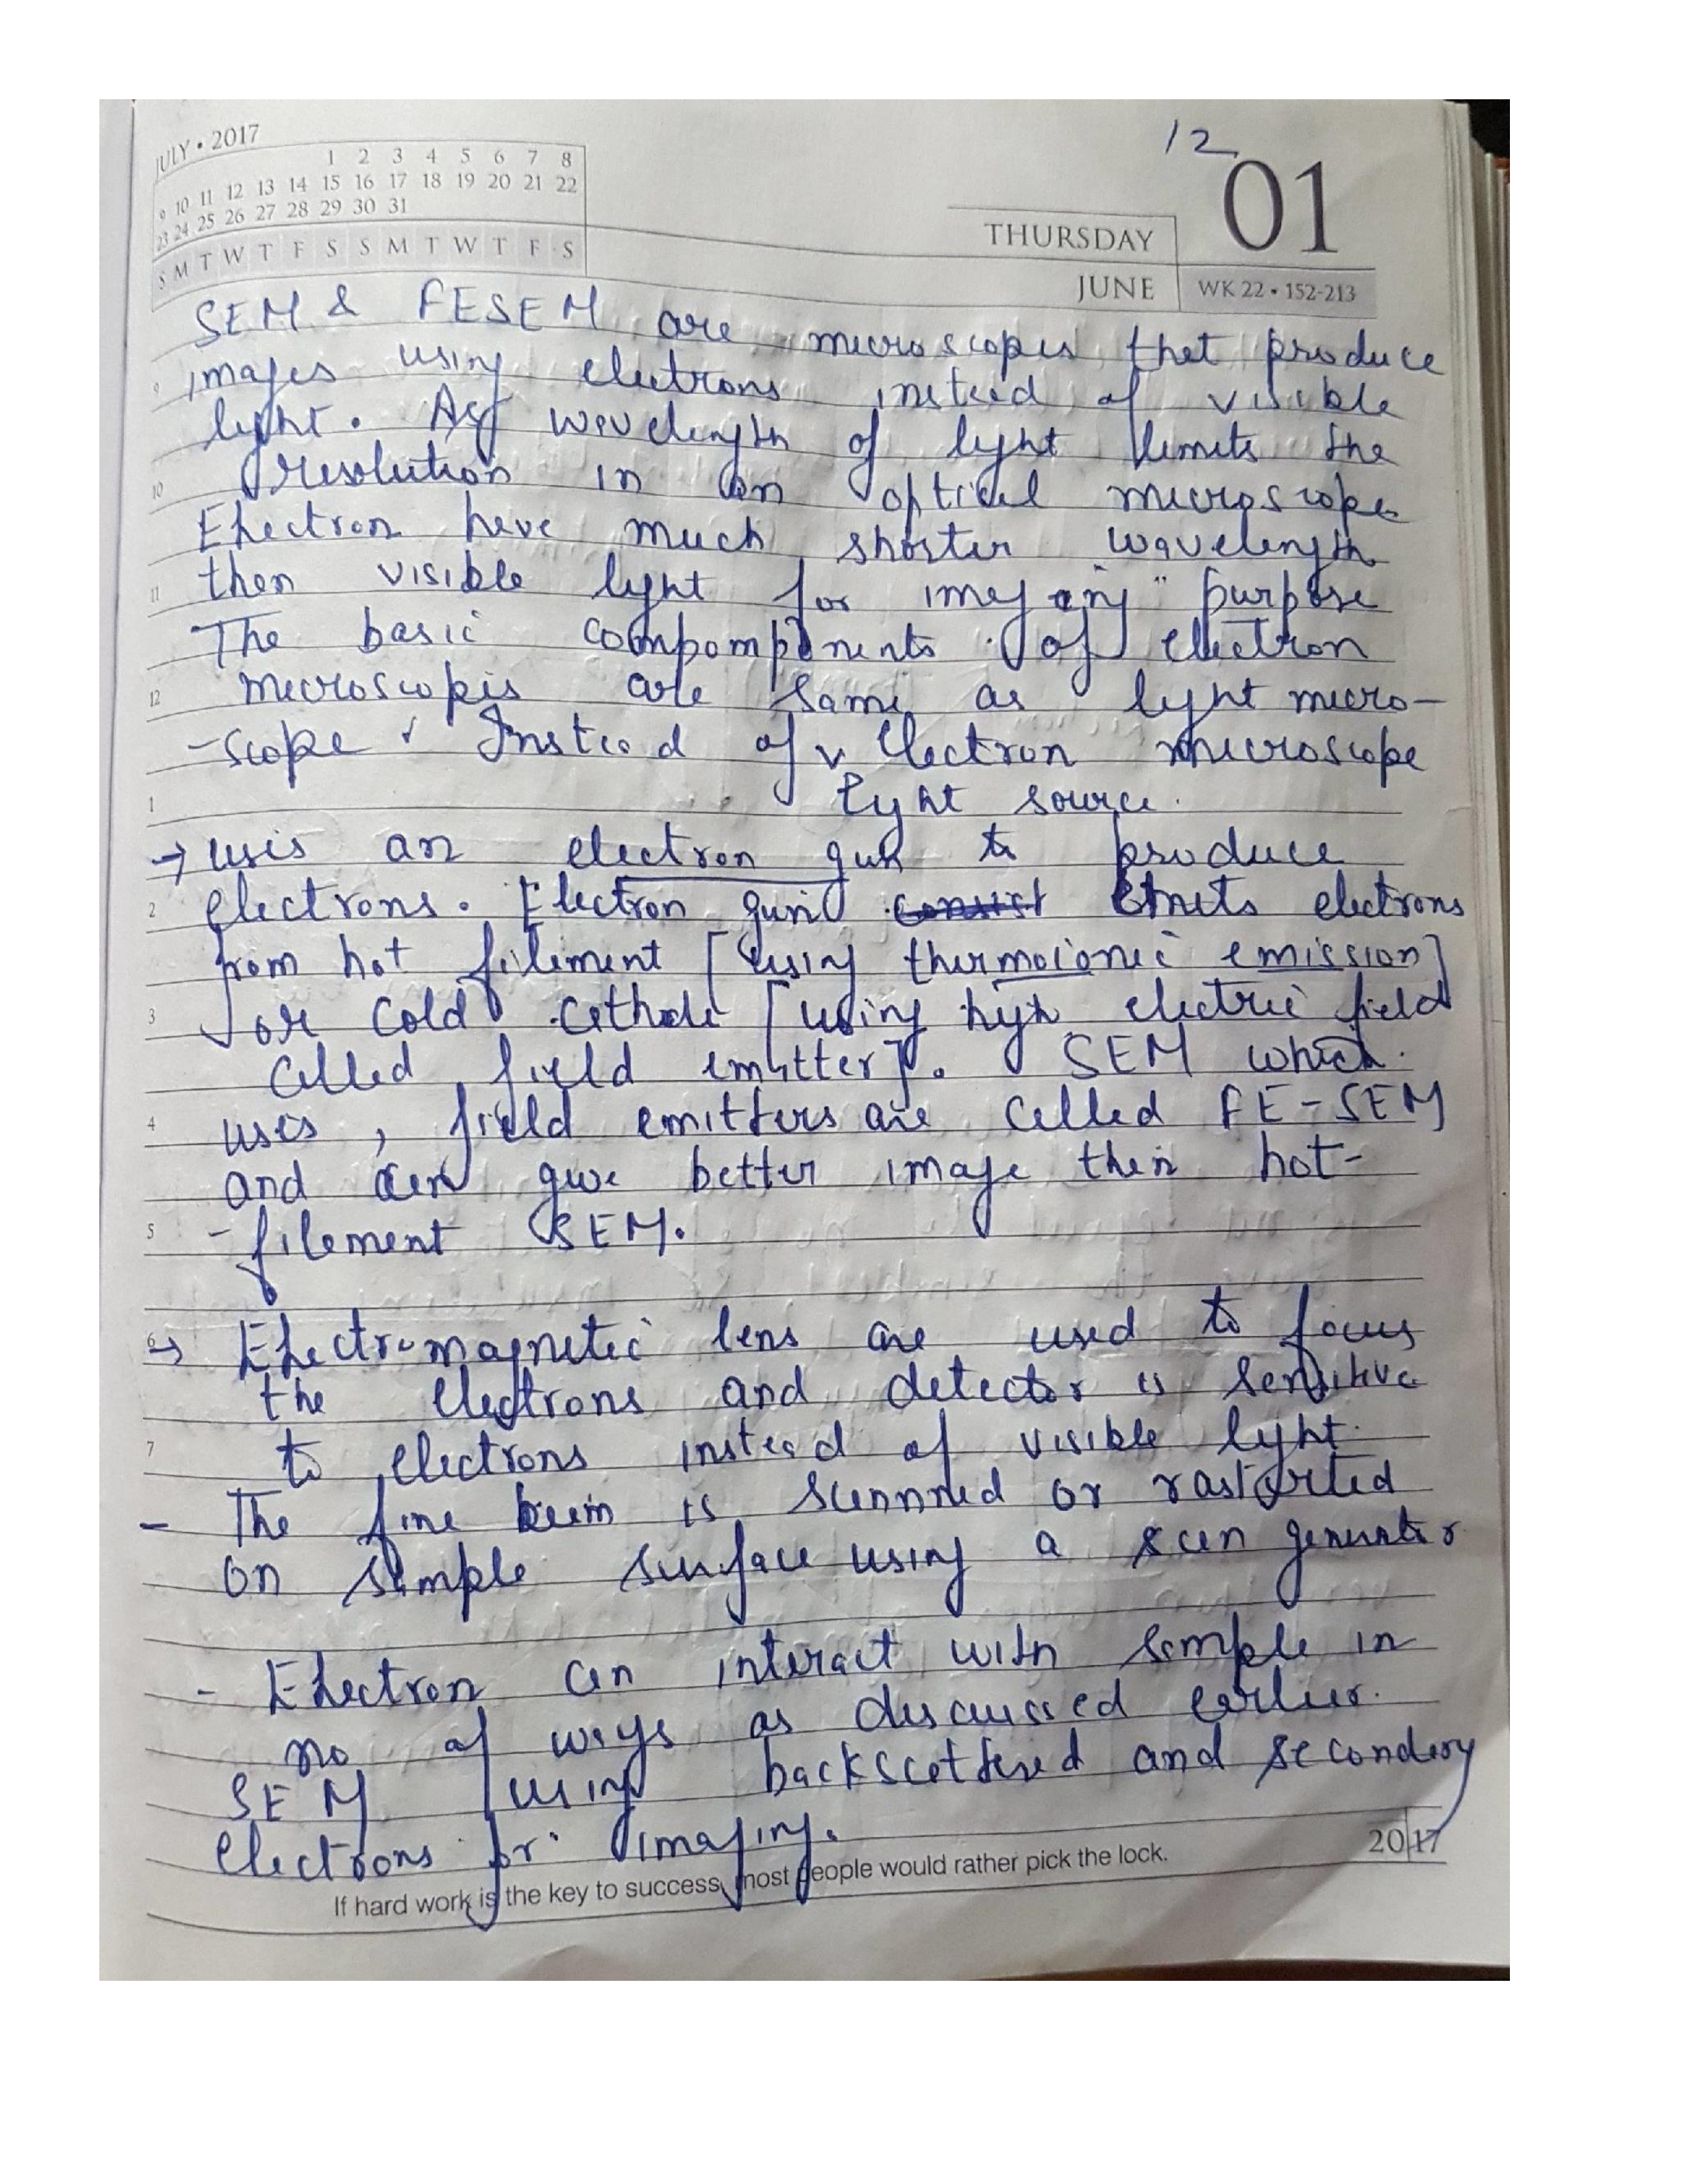 JULY • 2017
1 2 3 4 5 6 7 8
9 10 11 12 13 14 15 16 17 18 19 20 21 22
23 24 25 26 27 28 29 30 31
S M T W T F S S M T W T F S
12
01
THURSDAY
JUNE WK 22 • 152-213
SEM & FESEM are microscopes that produce
9 images using electrons instead of visible
light. As wavelength of light limits the
10 resolution in an optical microscope
Electron have much shorter wavelength
11 then visible light for imaging purpose
The basic components of electron
12 microscopes are same as light micro-
-scope. Instead of electron microscope
1 light source.
→ uses an electron gun to produce
2 electrons. Electron gun consist emits electrons
from hot filiment [using thermoionic emission]
3 or cold cathode [using high electric field
called field emitter]. SEM which
4 uses, field emitters are called FE-SEM
and can give better image then hot-
5 -filement SEM.
6 → Electromagnetic lens are used to focus
the electrons and detector is sensitive
7 to electrons instead of visible light.
- The fine beam is scannned or
on sample surface using a scan generator
- Electron can interact with sample in
no of ways as discussed earlier.
SEM using backscattered and secondary
electrons for imaging.
2017
If hard work is the key to success, most people would rather pick the lock.